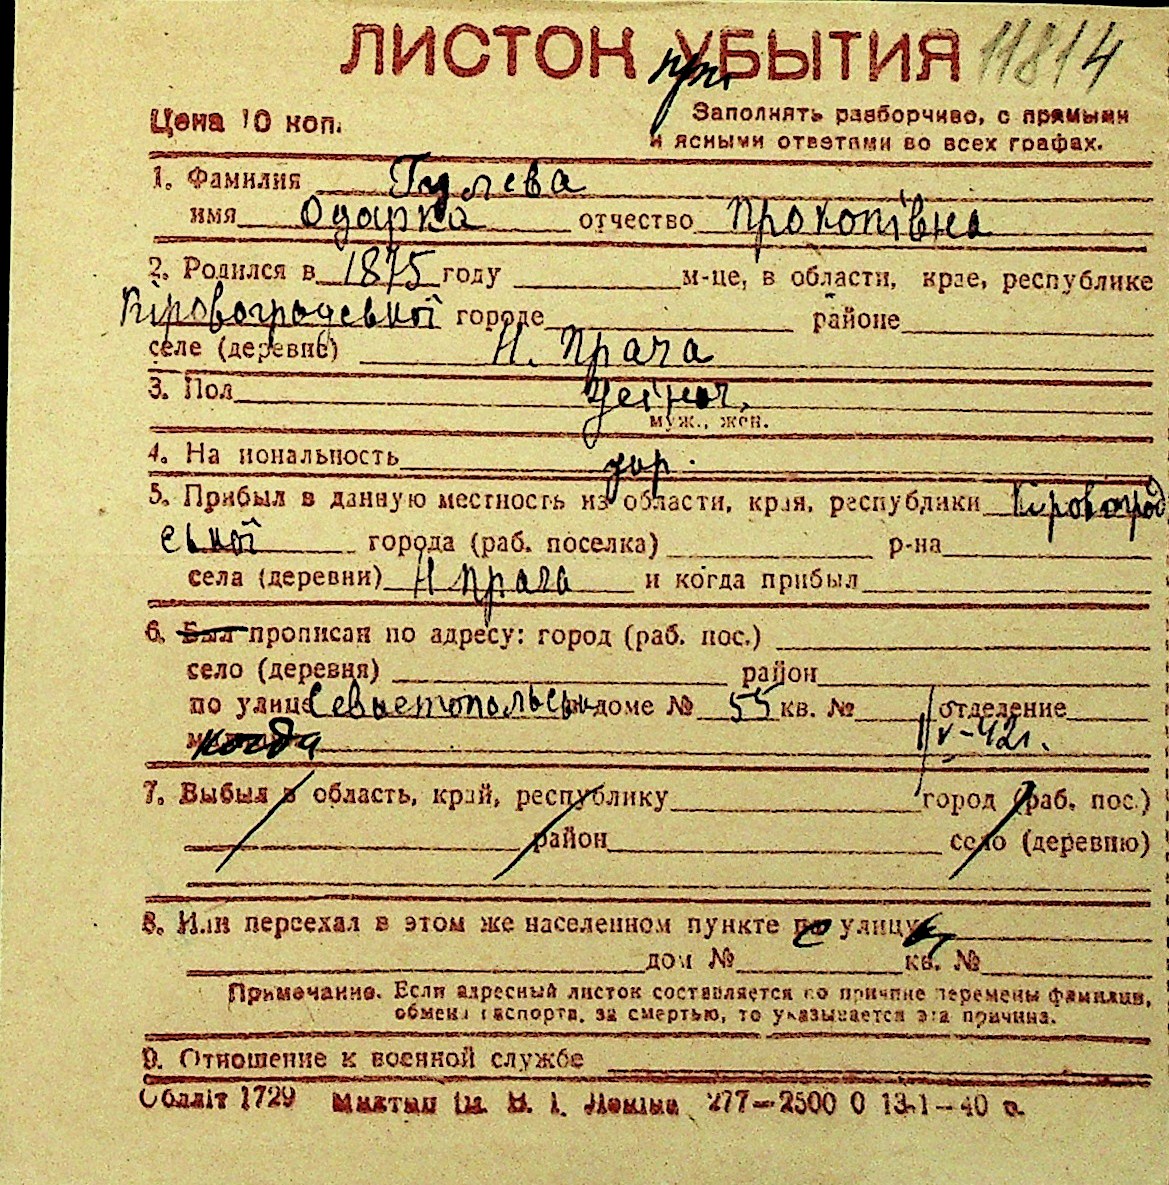 ЛИСТОК УБЫТИЯ 11814
при
Цена 10 коп.
Заполнять разборчиво, с прямыми
и ясными ответами во всех графах.
1. Фамилия Гулева
имя Одарка отчество Прокопівна
2. Родился в 1875 году м-це, в области, крае, республике
Кіровоградської городе районе
селе (деревне) Н. Прага
3. Пол жіноч.
муж., жен.
4. Национальность укр.
5. Прибыл в данную местность из области, края, республики Кіровоград
ської города (раб. поселка) р-на
села (деревни) Н Прага и когда прибыл
6. Был прописан по адресу: город (раб. пос.)
село (деревня) район
по улице Севастопольськ доме № 55 кв. № отделение
когда V-42г.
7. Выбыл в область, край, республику город (раб. пос.)
район село (деревню)
8. Или переехал в этом же населенном пункте с улицы
дом № кв. №
Примечание. Если адресный листок составляется по причине перемены фамилии,
обмена паспорта, за смертью, то указывается эта причина.
9. Отношение к военной службе
Обллiт 1729 277—2500 0 13-1—40 р.